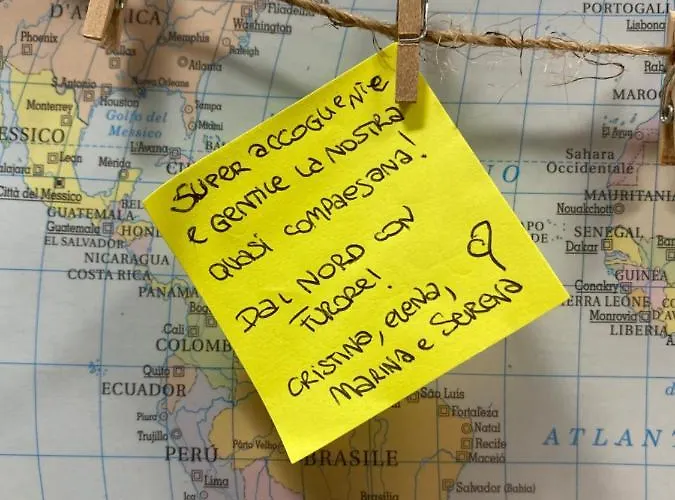 SUPER ACCOGLIENTE
e GENTILE LA NOSTRA
QUASI COMPAESANA!
DAL NORD CON
FURORE!
CRISTINA, ELENA,
MARINA e SERENA
D'AMERICA
Phoenix
Dallas
Memphis
Atlanta
Filadelfia
Washington
Raleigh
S.Antonio
Houston
New Orleans
Tampa
Miami
Monterrey
Golfo del
Messico
L'Avana
MESSICO
León
Mérida
Città del Messico
GUATEMALA
Guatemala
EL SALVADOR
NICARAGUA
COSTA RICA
PANAMÁ
Cali
COLOMB
Quito
ECUADOR
Piura
Trujillo
PERÙ
Lima
Pôrto Velho
BRASILE
Brasília
São Luís
Fortaleza
Natal
Recife
Maceió
Salvador (Bahia)
ATLAN
PORTOGALL
Lisbona
Rab
MAROC
El Ayun
Sahara
Occidentale
MAURITANIA
Nouakchott
Dakar
SENEGAL
GUINEA
Conakry
IERRA LEONE
Monrovia
LIBERIA